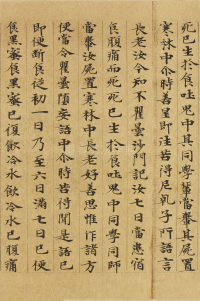 死已生於食吐鬼中其同學輩當轝其屍置
寒林中尒時善星即往苦得尼乾子所語言
長老汝今知不瞿曇沙門記汝七日當患宿
食腹痛而死死已生於食吐鬼中同學同師
當轝汝屍置寒林中長老好善思惟作諸方
便當令瞿曇墮妄語中尒時苦得聞是語已
即便斷食從初一日乃至六日滿七日已便
食黑蜜食黑蜜已復飲冷水飲冷水已腹痛